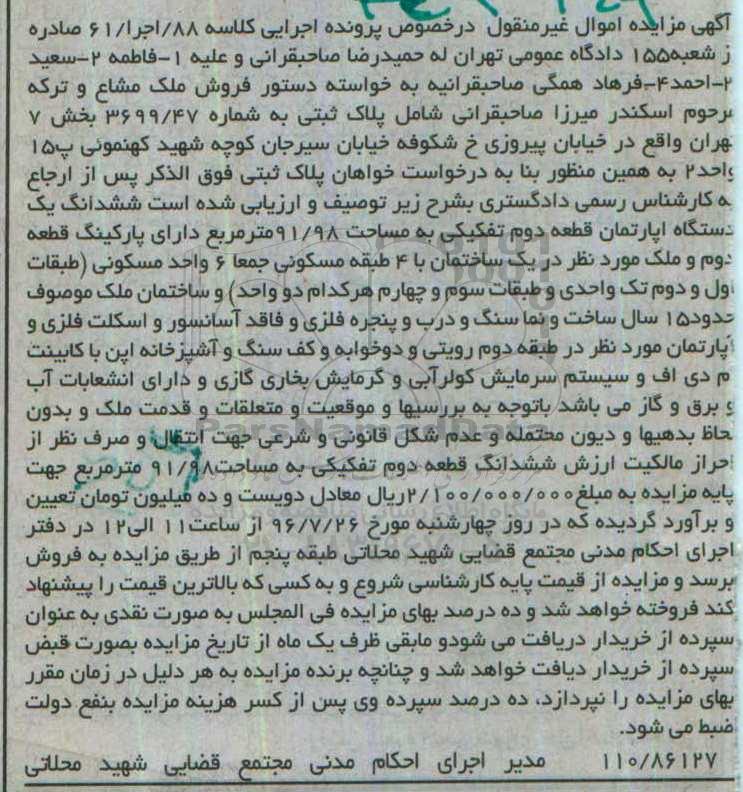 آگهی مزایده اموال غیرمنقول درخصوص پرونده اجرایی کلاسه ۸۸/اجرا/۶۱ صادره
ز شعبه۱۵۵ دادگاه عمومی تهران له حمیدرضا صاحبقرانی و علیه ۱-فاطمه ۲-سعید
۳-احمد۴-فرهاد همگی صاحبقرانیه به خواسته دستور فروش ملک مشاع و ترکه
مرحوم اسکندر میرزا صاحبقرانی شامل پلاک ثبتی به شماره ۳۶۹۹/۴۷ بخش ۷
تهران واقع در خیابان پیروزی خ شکوفه خیابان سیرجان کوچه شهید کهنموئی پ۱۵
واحد۲ به همین منظور بنا به درخواست خواهان پلاک ثبتی فوق الذکر پس از ارجاع
به کارشناس رسمی دادگستری بشرح زیر توصیف و ارزیابی شده است ششدانگ یک
دستگاه اپارتمان قطعه دوم تفکیکی به مساحت ۹۱/۹۸مترمربع دارای پارکینگ قطعه
دوم و ملک مورد نظر در یک ساختمان با ۴ طبقه مسکونی جمعا ۶ واحد مسکونی (طبقات
اول و دوم تک واحدی و طبقات سوم و چهارم هرکدام دو واحد) و ساختمان ملک موصوف
حدود۱۵ سال ساخت و نما سنگ و درب و پنجره فلزی و فاقد آسانسور و اسکلت فلزی و
آپارتمان مورد نظر در طبقه دوم رویتی و دوخوابه و کف سنگ و آشپزخانه اپن با کابینت
م دی اف و سیستم سرمایش کولرآبی و گرمایش بخاری گازی و دارای انشعابات آب
و برق و گاز می باشد باتوجه به بررسیها و موقعیت و متعلقات و قدمت ملک و بدون
لحاظ بدهیها و دیون محتمله و عدم شکل قانونی و شرعی جهت انتقال و صرف نظر از
احراز مالکیت ارزش ششدانگ قطعه دوم تفکیکی به مساحت۹۱/۹۸ مترمربع جهت
پایه مزایده به مبلغ۲/۱۰۰/۰۰۰/۰۰۰ریال معادل دویست و ده میلیون تومان تعیین
و برآورد گردیده که در روز چهارشنبه مورخ ۹۶/۷/۲۶ از ساعت۱۱ الی۱۲ در دفتر
اجرای احکام مدنی مجتمع قضایی شهید محلاتی طبقه پنجم از طریق مزایده به فروش
برسد و مزایده از قیمت پایه کارشناسی شروع و به کسی که بالاترین قیمت را پیشنهاد
کند فروخته خواهد شد و ده درصد بهای مزایده فی المجلس به صورت نقدی به عنوان
سپرده از خریدار دریافت می شودو مابقی ظرف یک ماه از تاریخ مزایده بصورت قبض
سپرده از خریدار دیافت خواهد شد و چنانچه برنده مزایده به هر دلیل در زمان مقرر
بهای مزایده را نپردازد، ده درصد سپرده وی پس از کسر هزینه مزایده بنفع دولت
ضبط می شود.
۱۱۰/۸۶۱۲۷ مدیر اجرای احکام مدنی مجتمع قضایی شهید محلاتی
ParsNamadData